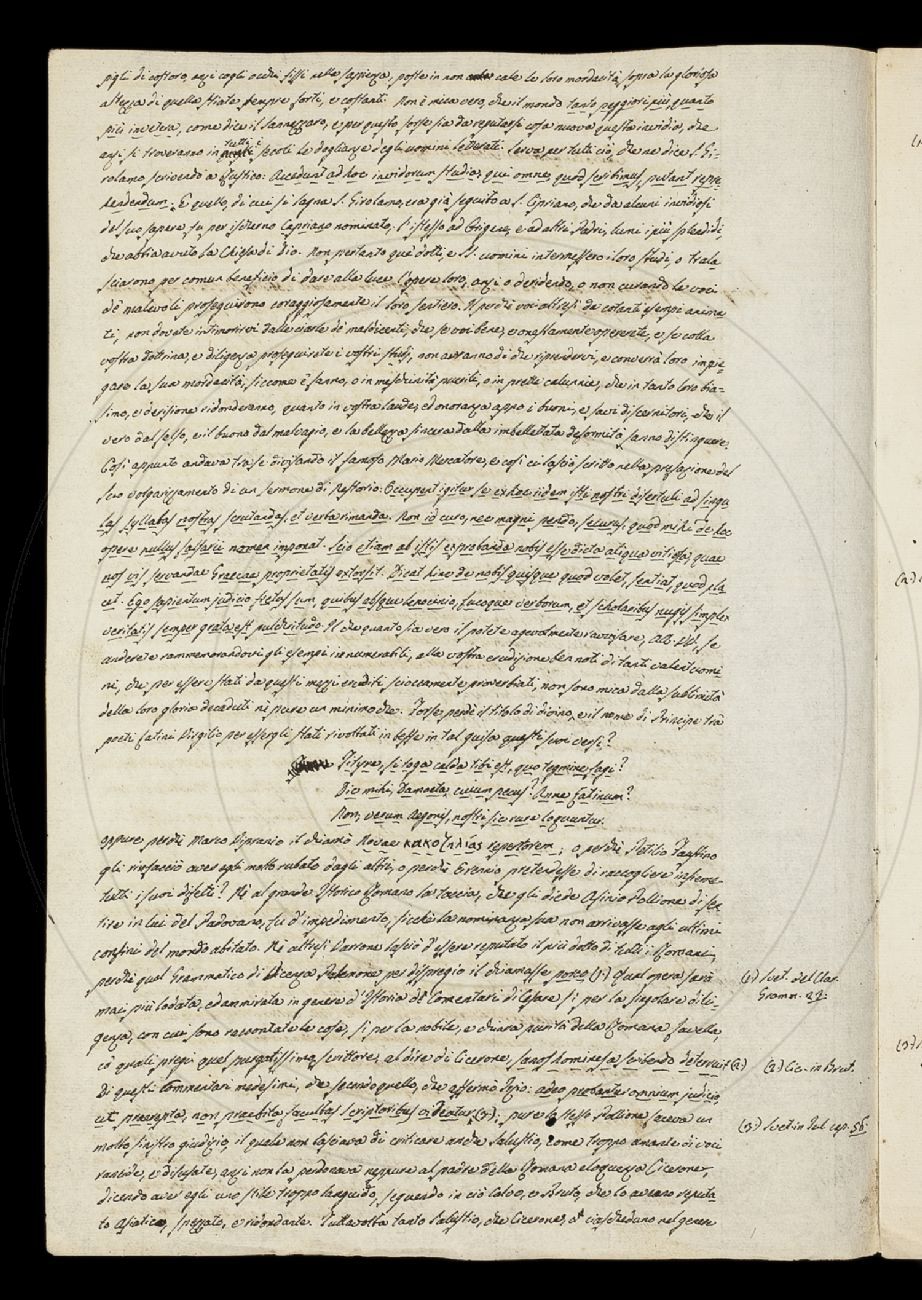 pigli di costoro, anzi cogli occhi fissi nella sapienza, poste in non cale le loro mordacità, sopra la gloriosa
altezza di quella stiate sempre forti, e costanti. Non è mica vero, che il mondo tanto peggiori più, quanto
più invetera, come dice il Sannazzaro, e per questo forse sia da reputarsi cosa nuova questa invidia, che
anzi si troveranno in tutti i secoli le doglianze degli uomini letterati. Serva per tutti ciò, che ne dice S. Gi-
rolamo scrivendo a Rustico: Accedunt ad hoc invidorum studia, qui omne, quod scribimus, putant repre-
hendendum. E quello, di cui si lagna S. Girolamo, era già seguito a S. Cipriano, che da alcuni invidiosi
del suo sapere fu per ischerno Capriano nominato, l'istesso ad Origene, e ad altri Padri, lumi i più splendidi,
che abbia avuto la Chiesa di Dio. Non pertanto que' dotti, e SS. uomini intermessero i loro studj, o trala-
sciarono per comun beneficio di dare alla luce l'opere loro, anzi o deridendo, o non curando le voci
de' malevoli proseguirono coraggiosamente il loro sentiero. Il perchè voi altresì da cotanti esempi anima-
ti, non dovete intimorirvi dalle ciarle de' maldicenti, che se voi bene, e onestamente opererete, e se colla
vostra dottrina, e diligenza proseguirete i vostri studj, non avranno di che riprendervi, e converrà loro impie-
gare la sua mordacità, siccome è fanno, o in meschinità puerili, o in prette calunnie, che in tanto loro bia-
simo, e derisione ridonderanno, quanto in vostra laude, ed onoranza appo i buoni, e savi discernitori, che il
vero dal falso, e il buono dal malvagio, e la bellezza sincera dalla imbellettata deformità sanno distinguere.
Così appunto andava tra se divisando il famoso Mario Mercatore, e così ci lasciò scritto nella prefazione del
suo volgarizzamento di un sermone di Nestorio: Occupent igitur se ex hoc iidem isti nostri disertuli ad singu-
las syllabas nostras scrutandas, et verba rimanda. Non id curo, nec magni pendo, securus, quod mihi de hoc
opere nullus falsarii nomen imponat. Scio etiam ab istis exprobranda nobis esse dicta aliqua vitiosa, quae
nos vis servandae Graecae proprietatis extorsit. Dicat hinc de nobis quisque quod volet, sentiat, quod pla-
cet. Ego sapientum judicio fretus sum, quibus absque lenocinio, fucoque verborum, et scholaribus nugis simplex
veritatis semper grata est pulchritudo. Il che quanto sia vero il potete agevolmente ravvisare, AA. VV., se
anderete rammemorandovi gli esempi innumerabili, alla vostra erudizione ben noti di tanti valentuomi-
ni, che per essere stati da questi mezzi eruditi scioccamente proverbiati, non sono mica dalla sublimità
della loro gloria decaduti nè pure un minimo che. Forse perdè il titolo di divino, e il nome di Principe tra'
poeti Latini Virgilio per essergli stati rivoltati in beffe in tal guisa questi suoi versi?
Tityre, si toga calda tibi est, quo tegmine fagi?
Dic mihi, Damoeta, cuium pecus? Anne Latinum?
Non, verum Aegonis, nostri sic rure loquuntur.
oppure perchè Marco Vipranio il chiamò Novae κακοζηλίας repertorem; o perchè Petilio Faustino
gli rinfacciò aver egli molto rubato dagli altri, o perchè Erennio pretendesse di raccogliere insieme
tutti i suoi difetti? Nè al grande Istorico Romano la taccia, che gli diede Asinio Pollione di sen-
tire in lui del Padovano, fu d'impedimento, sicchè la nominanza sua non arrivasse agli ultimi
confini del mondo abitato. Nè altresì Varrone lasciò d'essere reputato il più dotto di tutti i Romani,
perchè quel Grammatico di Vicenza Palemone per dispregio il chiamasse porco (1). Qual opera sarà
mai più lodata, ed ammirata in genere d'Istoria de' Comentari di Cesare, sì per la singolare dili-
genza, con cui sono raccontate le cose, sì per la nobile, e chiara purità della Romana favella,
co' quali pregi quel purgatissimo scrittore, al dire di Cicerone, sanos homines a scribendo deterruit (2)
Di questi Commentari medesimi, che secondo quello, che affermò Irzio: adeo probantur omnium judicio,
ut praerepta, non praebita facultas scriptoribus videatur (3); pure lo stesso Pollione faceva un
molto sinistro giudizio, il quale non lasciava di criticare anche Salustio, come troppo amante di voci
rancide, e disusate, anzi non la perdonava neppure al padre della Romana eloquenza Cicerone,
dicendo aver egli uno stile troppo languido, seguendo in ciò Calvo, e Bruto, che lo aveano reputa-
to Asiatico, spezzato, e ridondante. Tuttavolta tanto Salustio, che Cicerone, ciascheduno nel genere
(1) Svet. del Clar.
Gramm. 23.
(2) Cic. in Brut.
(3) Svet. in Jul. cap. 56.